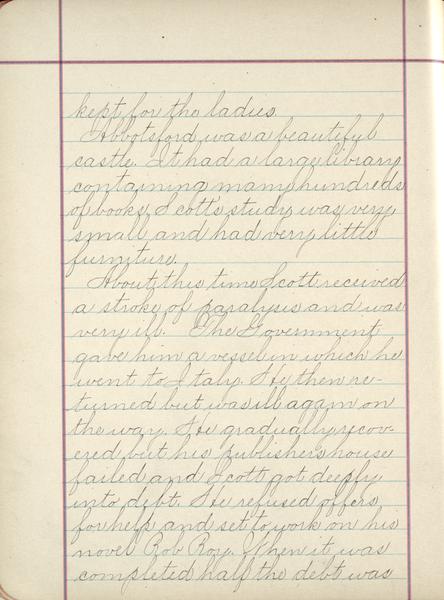 kept for the ladies.
Abbotsford was a beautiful
castle. It had a large library
containing many hundreds
of books. Scott's study was very
small and had very little
furniture.
About this time Scott received
a stroke of paralysis and was
very ill. The Government
gave him a vessel in which he
went to Italy. He then re-
turned but was ill again on
the way. He gradually recov-
ered but his publishers house
failed and Scott got deeply
into debt. He refused offers
for help and set to work on his
novel Rob Roy. When it was
completed half the debt was